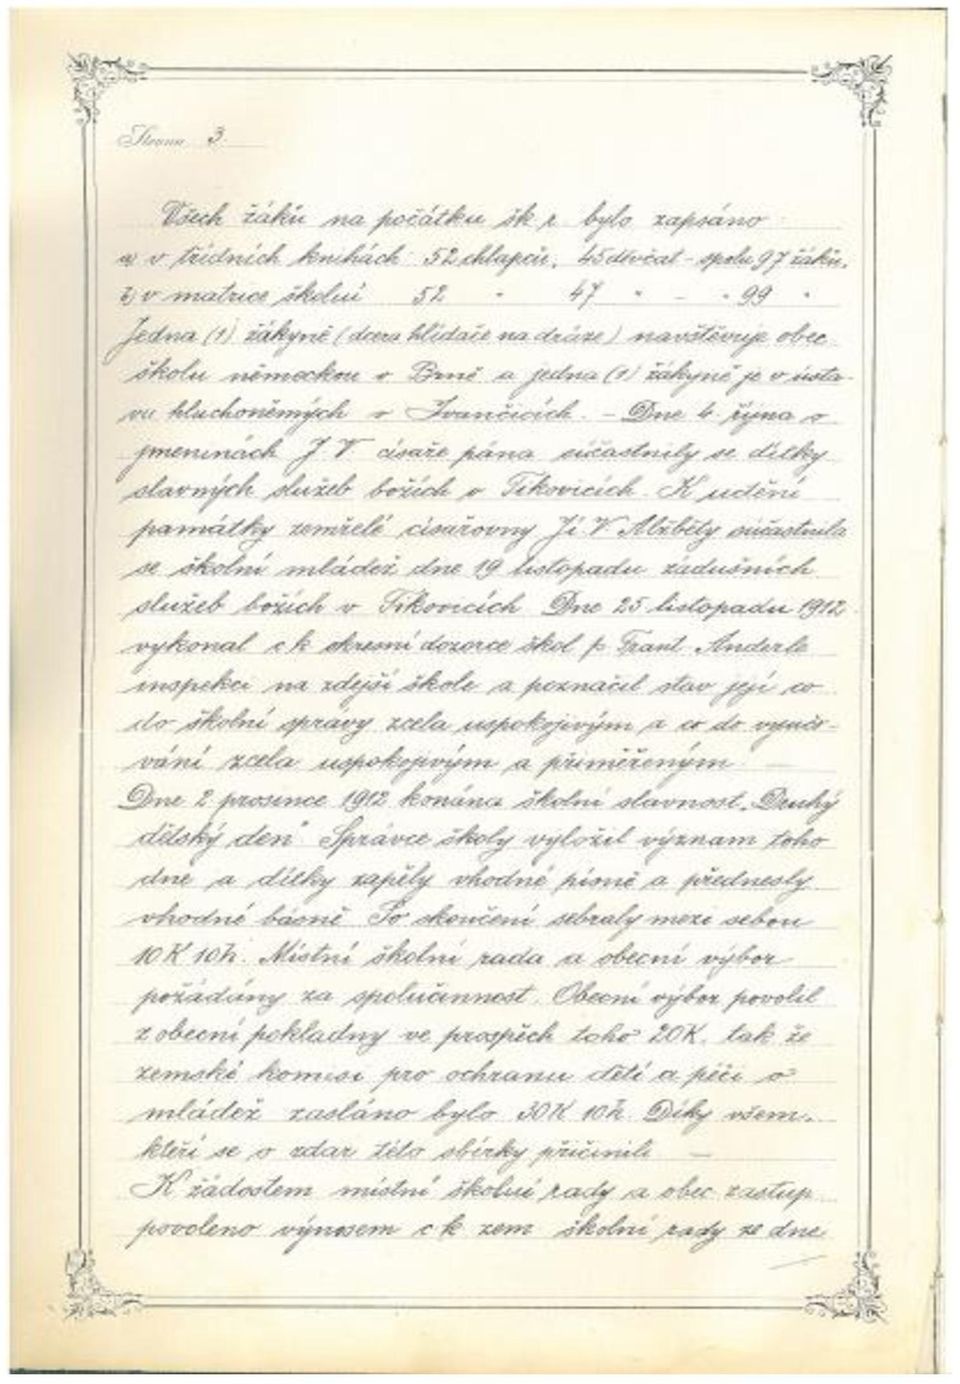 Strana 3.
Všech žáků na počátku šk. r. bylo zapsáno
a) v třídních knihách 52 chlapců, 45 děvčat - spolu 97 žáků,
b) v matrice školní 52 " 47 " - " 99 "
Jedna (1) žákyně (dcera hlídače na dráze) navštěvuje obec.
školu německou v Brně a jedna (1) žákyně je v ústa-
vu hluchoněmých v Ivančicích. - Dne 4. října o
jmeninách J. V. císaře pána súčastnily se dítky
slavných služeb božích v Tikovicích. K uctění
památky zemřelé císařovny Jí. V. Alžběty súčastnila
se školní mládež dne 19 listopadu zadušních
služeb božích v Tikovicích. Dne 25. listopadu 1912
vykonal c. k. okresní dozorce škol p. Frant. Anderle
inspekci na zdejší škole a poznačil stav její co
do školní správy zcela uspokojivým a co do vyučo-
vání zcela uspokojivým a přiměřeným. -
Dne 2 prosince 1912 konána školní slavnost „Druhý
dětský den" Správce školy vyložil význam toho
dne a dítky zapěly vhodné písně a přednesly
vhodné básně. Po skončení sebraly mezi sebou
10 K 10 h. Místní školní rada a obecní výbor
požádány za spolučinnost. Obecní výbor povolil
z obecní pokladny ve prospěch toho 20 K, tak že
zemské komisi pro ochranu dětí a péči o
mládež zasláno bylo 30 K 10 h. Díky všem,
kteří se o zdar této sbírky přičinili. -
K žádostem místní školní rady a obec. zastup.
povoleno výnosem c. k. zem. školní rady ze dne